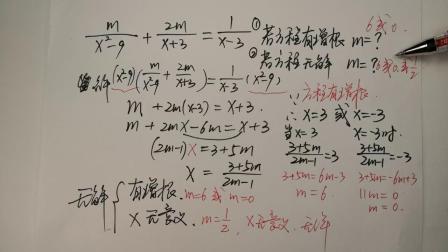 m/(x²-9) + 2m/(x+3) = 1/(x-3)
① 若方程有增根 m=? 6或0.
② 若方程无解 m=? 6或0.或1/2
解 (x²-9)(m/(x²-9) + 2m/(x+3)) = 1/(x-3) (x²-9)
m + 2m(x-3) = x+3
m + 2mx - 6m = x+3
(2m-1)x = 3+5m
x = (3+5m)/(2m-1)
∵ 方程有增根.
∴ x=3 或 x=-3
当 x=3 x=-3时.
(3+5m)/(2m-1) = 3 (3+5m)/(2m-1) = -3
3+5m=6m-3 3+5m=-6m+3
m=6. 11m=0
m=0.
无解 { 有增根. m=6 或 m=0
x 无意义. m=1/2. x无意义. 无解